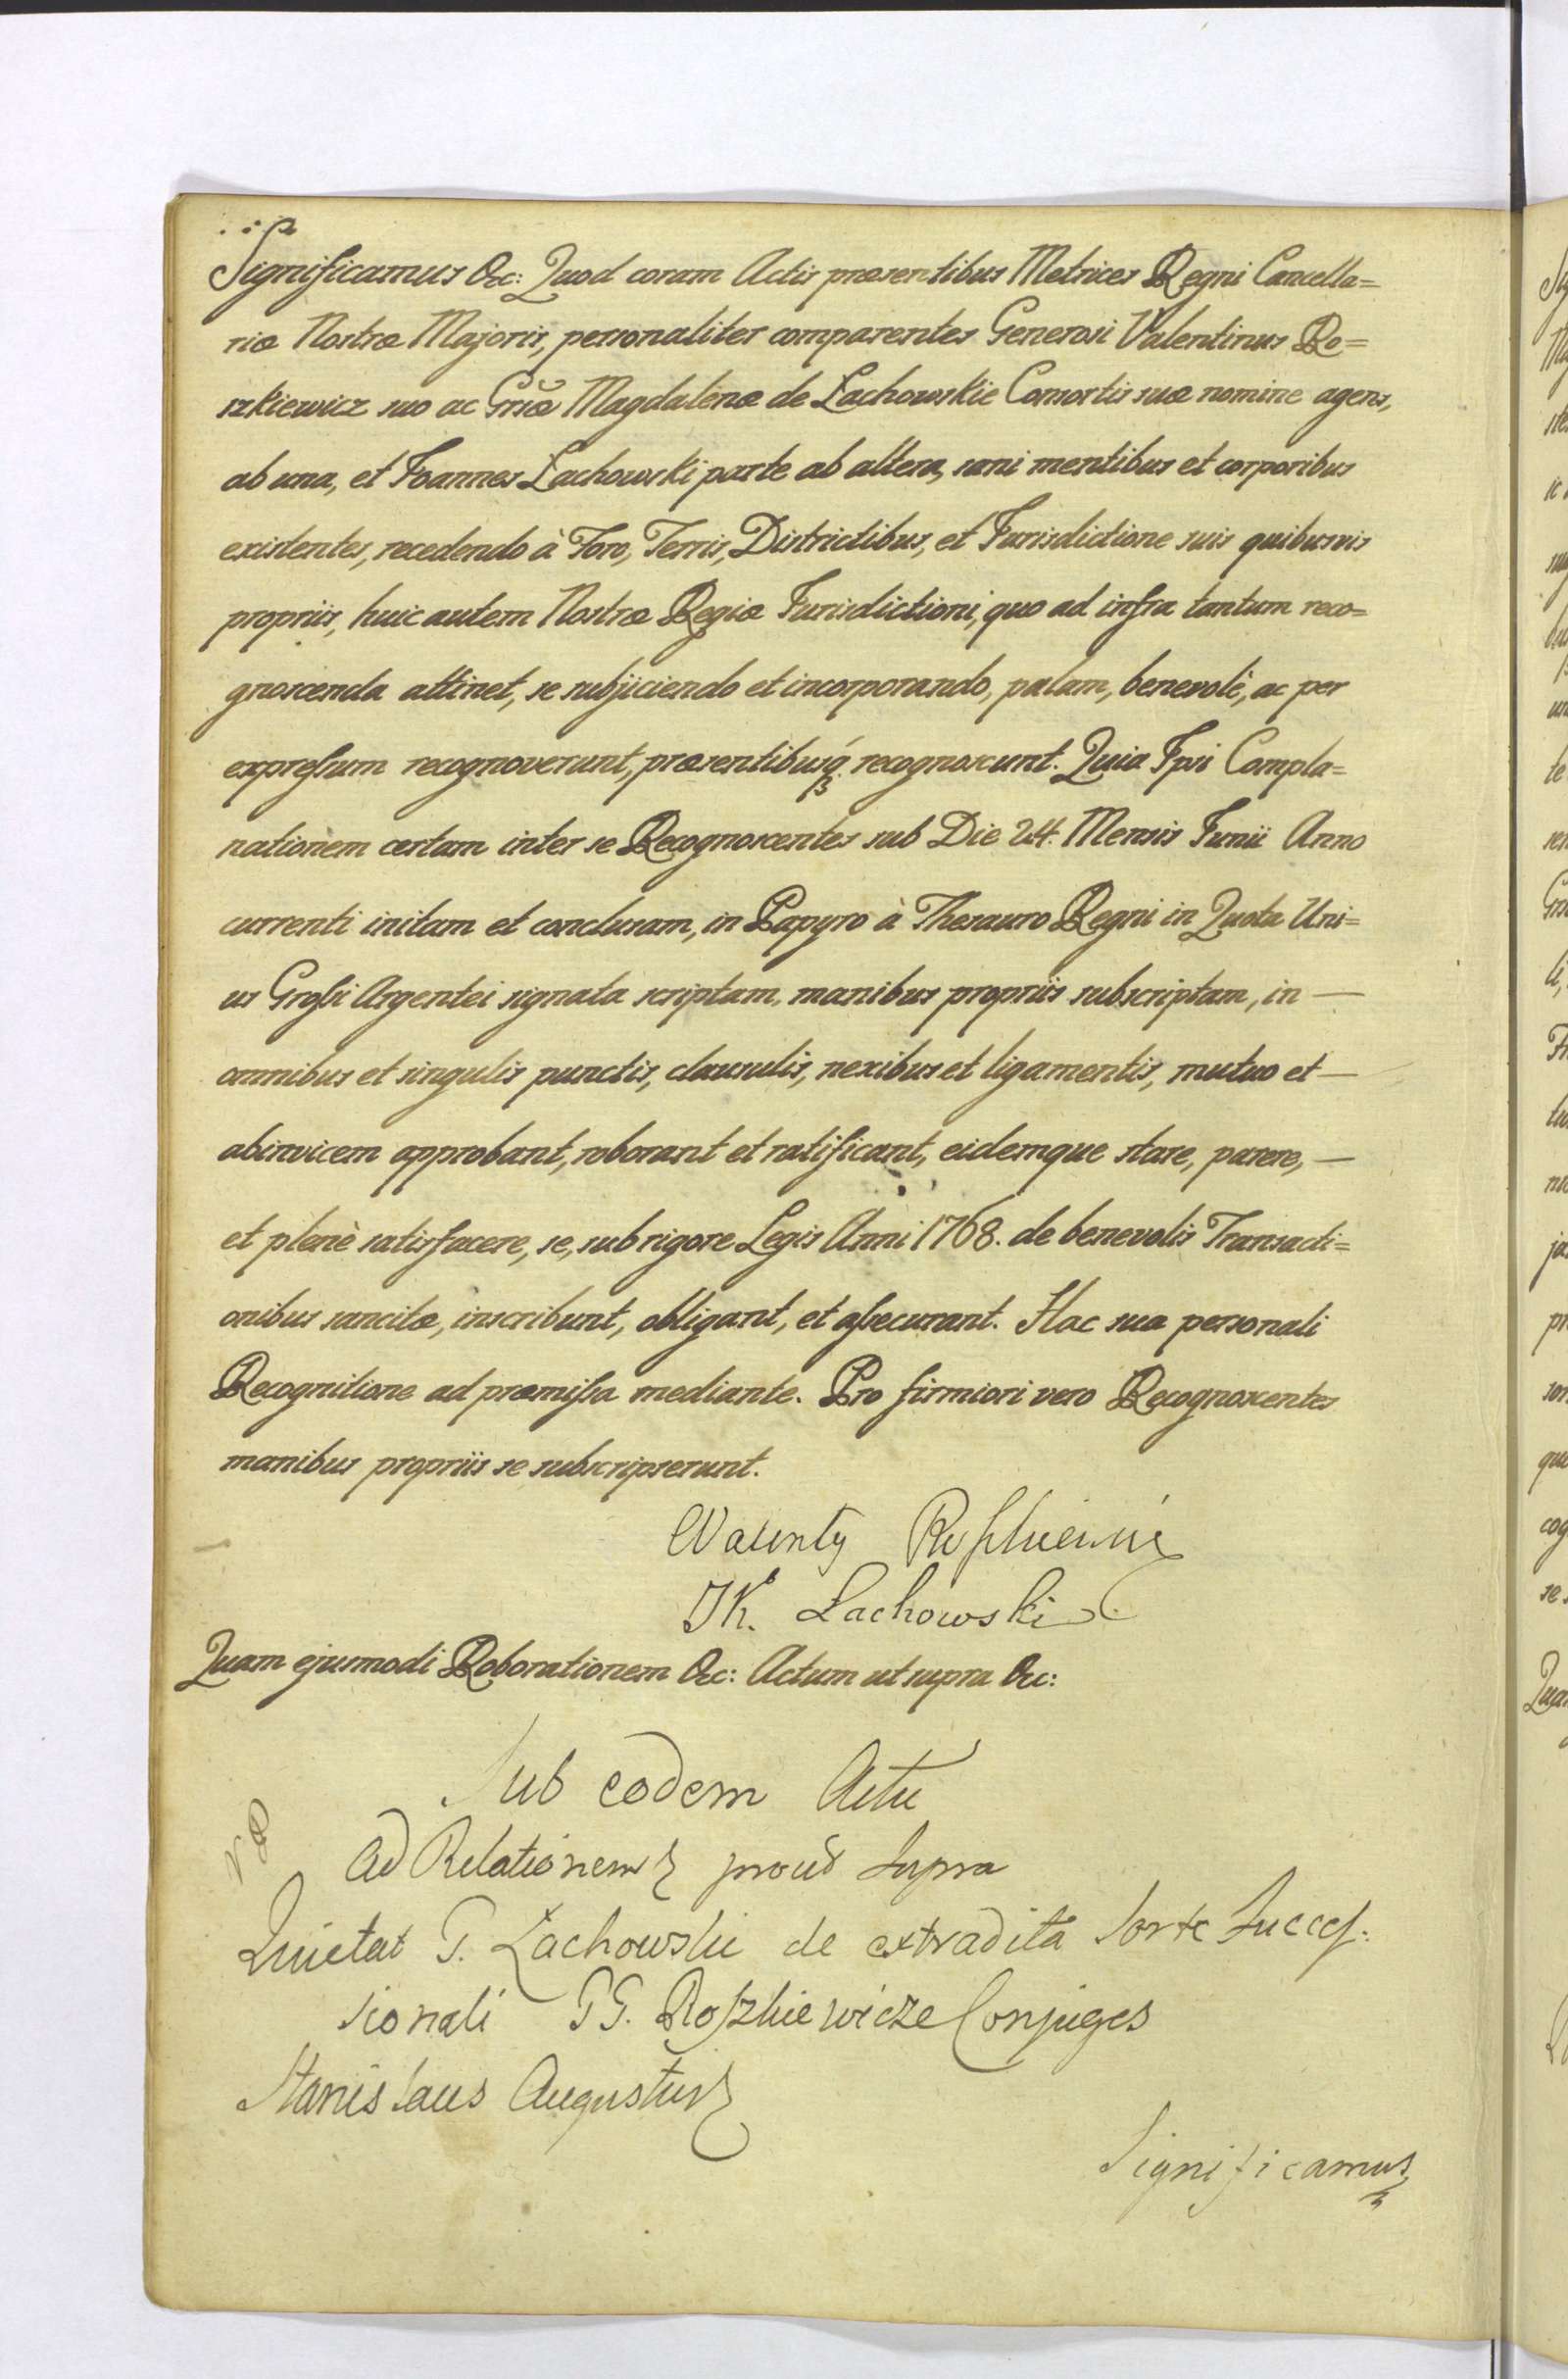 Significamus &c: Quod coram Actis præsentibus Metrices Regni Cancella=
riæ Nostræ Majoris, personaliter comparentes Generosi Valentinus Ro=
szkiewicz suo ac Gnsæ Magdalenæ de Lachowskie Consortis suæ nomine agens,
ab una, et Joannes Lachowski parte ab altera, sani mentibus et corporibus
existentes, recedendo à Foro, Terris, Districtibus, et Jurisdictione suis quibusvis
propriis, huic autem Nostræ Regiæ Jurisdictioni, quo ad infra tantum reco=
gnoscenda attinet, se subjiciendo et incorporando, palam, benevolè, ac per
expreſsum recognoverunt, præsentibusq́ recognoscunt. Quia Ipsi Compla=
nationem certam inter se Recognoscentes sub Die 24. Mensis Junii Anno
currenti initam et conclusam, in Papyro à Thesauro Regni in Quota Uni=
us Groſsi Argentei signata scriptam, manibus propriis subscriptam, in —
omnibus et singulis punctis, clausulis, nexibus et ligamentis, mutuo et —
abinvicem approbant, roborant et ratificant, eidemque stare, parere, —
et plenè satisfacere, se, sub rigore Legis Anni 1768. de benevolis Transacti=
onibus sancitæ, inscribunt, obligant, et aſsecurant. Hac sua personali
Recognitione ad præmiſsa mediante. Pro firmiori vero Recognoscentes
manibus propriis se subscripserunt.
Walenty Roſzkiewicz
JK. Lachowski
Quam ejusmodi Roborationem &c: Actum ut supra &c:
Sub eodem Actu
Ad Relationem prout supra
Quietat G. Lachowski de extradita sorte Succeſ.
sionali GG. Roſzkiewicze Conjuges
Stanislaus Augustus
Significamus